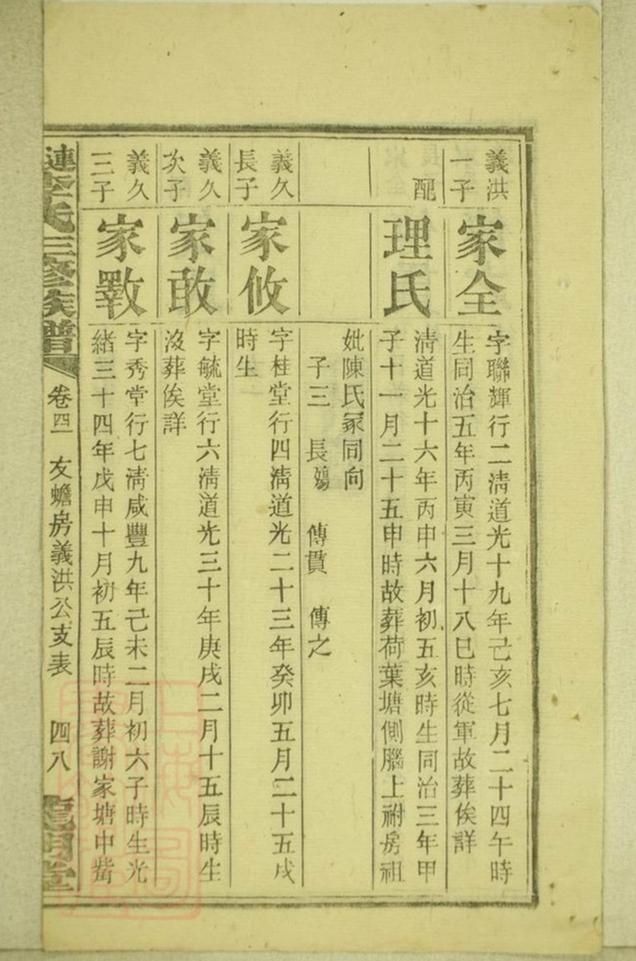 義洪
一子
家全
字聯輝行二淸道光十九年己亥七月二十四午時
生同治五年丙寅三月十八巳時從軍故葬俟詳
配
理氏
淸道光十六年丙申六月初五亥時生同治三年甲
子十一月二十五申時故葬荷葉塘側腦上祔房祖
妣陳氏冢同向
子三 長殤 傳貫 傳之
義久
長子
家攸
字桂堂行四淸道光二十三年癸卯五月二十五戌
時生
義久
次子
家敢
字毓堂行六淸道光三十年庚戌二月十五辰時生
沒葬俟詳
義久
三子
家斁
字秀堂行七淸咸豐九年己未二月初六子時生光
緒三十四年戊申十月初五辰時故葬謝家塘中嘴
漣李氏三修族譜 卷四一 友蟾房義洪公支表 四八 龍門堂